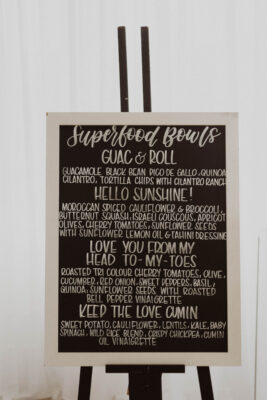 Superfood Bowls
GUAC & ROLL
GUACAMOLE, BLACK BEAN PICO DE GALLO, QUINOA
CILANTRO, TORTILLA CHIPS WITH CILANTRO RANCH
HELLO SUNSHINE!
MOROCCAN SPICED CAULIFLOWER & BROCCOLI,
BUTTERNUT SQUASH, ISRAELI COUSCOUS, APRICOT
OLIVES, CHERRY TOMATOES, SUNFLOWER SEEDS
WITH SUNFLOWER LEMON OIL & TAHINI DRESSING
LOVE YOU FROM MY
HEAD TO-MY-TOES
ROASTED TRI COLOUR CHERRY TOMATOES, OLIVE,
CUCUMBER, RED ONION, SWEET PEPPERS, BASIL,
QUINOA, SUNFLOWER SEEDS WITH ROASTED
BELL PEPPER VINAIGRETTE
KEEP THE LOVE CUMIN
SWEET POTATO, CAULIFLOWER, LENTILS, KALE, BABY
SPINACH, WILD RICE BLEND, CRISPY CHICKPEA, CUMIN
OIL VINAIGRETTE